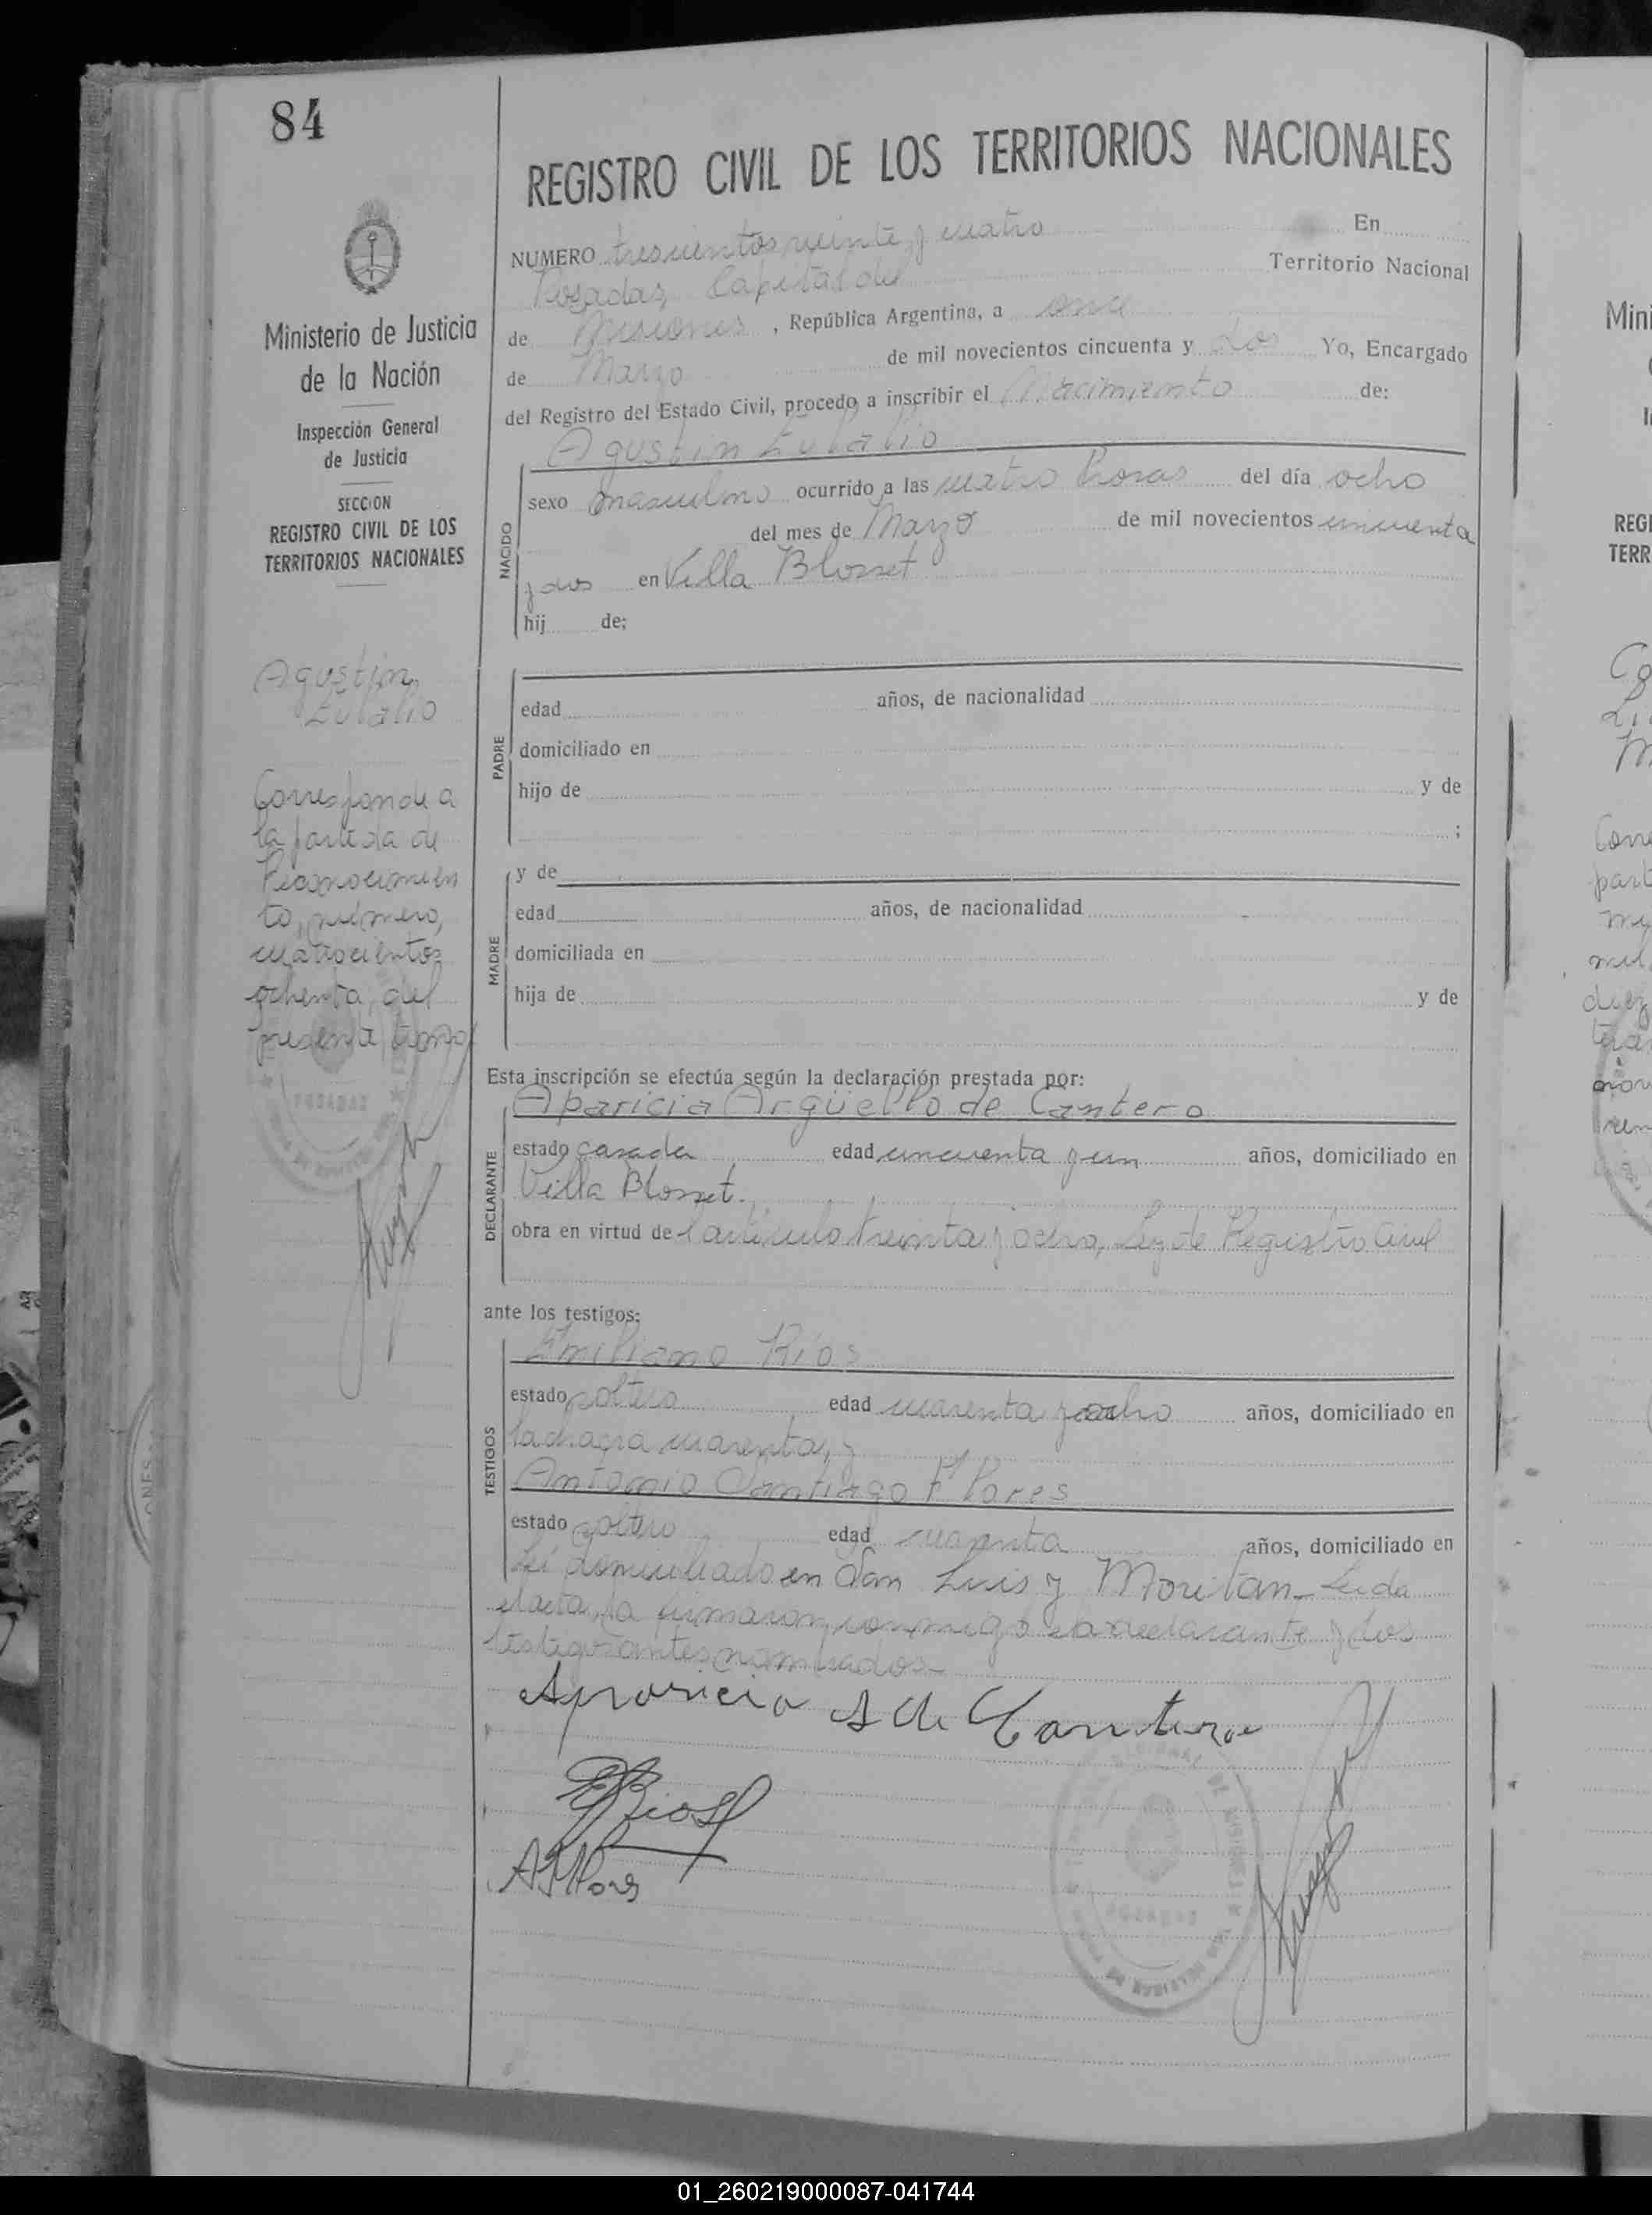 84
REGISTRO CIVIL DE LOS TERRITORIOS NACIONALES
Ministerio de Justicia
de la Nación
Inspección General
de Justicia
SECCION
REGISTRO CIVIL DE LOS
TERRITORIOS NACIONALES
Agustin
Eulalio
Corresponde a
la partida de
Reconocimien
to, número,
cuatrocientos
ochenta, del
presente tomo
POSADAS
NUMERO trescientos veinte y cuatro En
Posadas, Capital del Territorio Nacional
de Misiones , República Argentina, a once
de Marzo de mil novecientos cincuenta y dos Yo, Encargado
del Registro del Estado Civil, procedo a inscribir el Nacimiento de:
Agustin Eulalio
NACIDO
sexo masculino ocurrido a las cuatro horas del día ocho
del mes de Marzo de mil novecientos cincuenta
y dos en Villa Blosset
hij de;
PADRE
edad años, de nacionalidad
domiciliado en
hijo de y de
;
MADRE
y de
edad años, de nacionalidad
domiciliada en
hija de y de
Esta inscripción se efectúa según la declaración prestada por:
Aparicia Argüello de Cantero
DECLARANTE
estado casada edad cincuenta y un años, domiciliado en
Villa Blosset.
obra en virtud del artículo treinta y ocho, Ley de Registro Civil
ante los testigos:
TESTIGOS
Emiliano Ríos
estado soltero edad cuarenta y ocho años, domiciliado en
la chacra cuarenta, y
Antonio Santiago Flores
estado soltero edad cuarenta años, domiciliado en
domiciliado en San Luis y Moritan_ Leida
el acta, la firmaron conmigo la declarante y los
testigos antes nombrados_
Aparicia A de Cantero
ERios
ASFlores
POSADAS
01_260219000087-041744